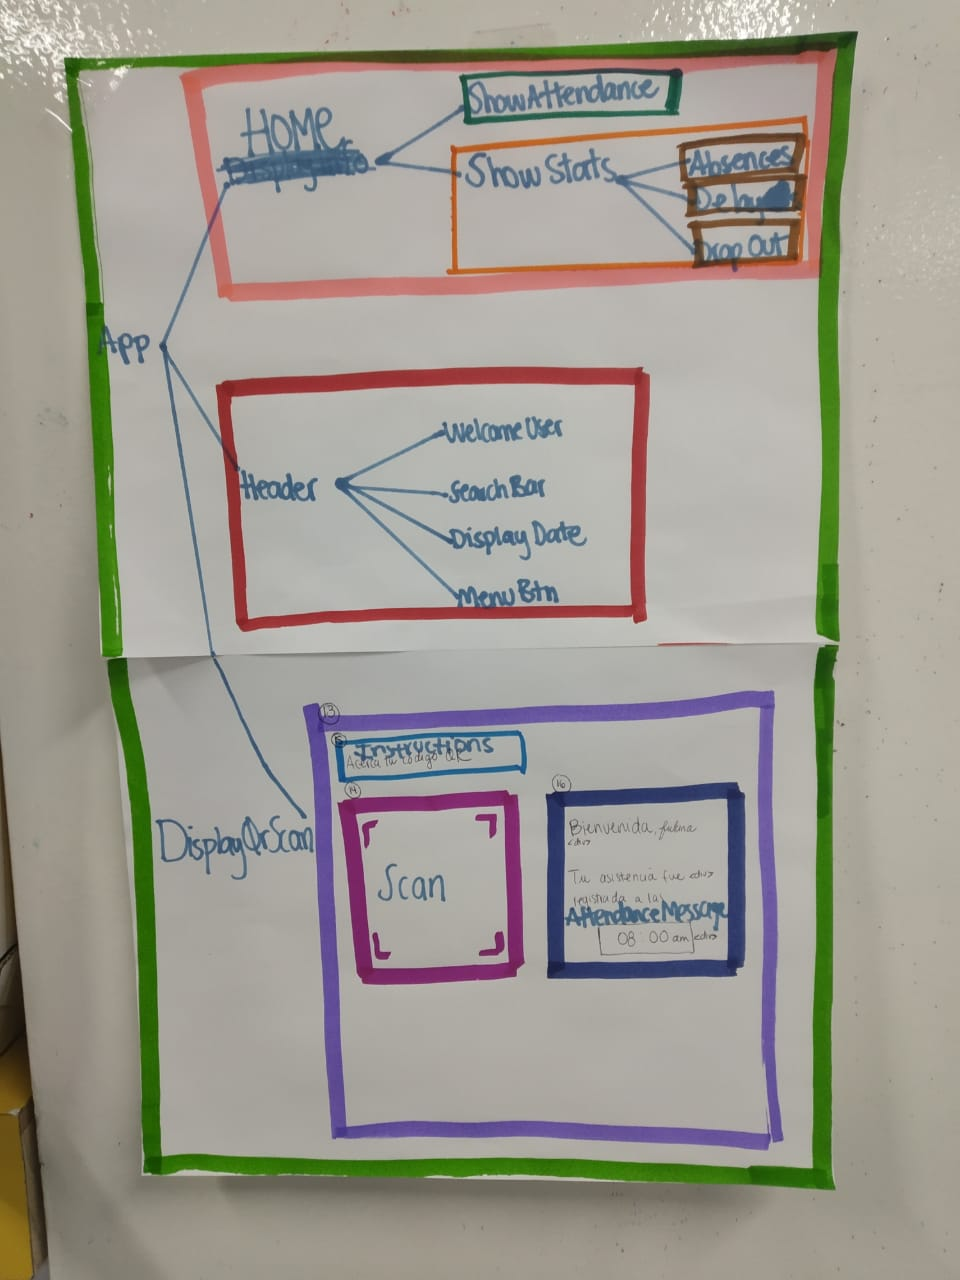 HOME
ShowAttendance
ShowStats
Absences
Delay
Drop Out
App
Header
Welcome User
Search Bar
Display Date
Menu Btn
13
15
Instructions
Acerca tu código QR
14
16
DisplayQrScan
Scan
Bienvenida, fulana
<div>
Tu asistencia fue <div>
registrada a las
AttendanceMessage
08:00 am <div>